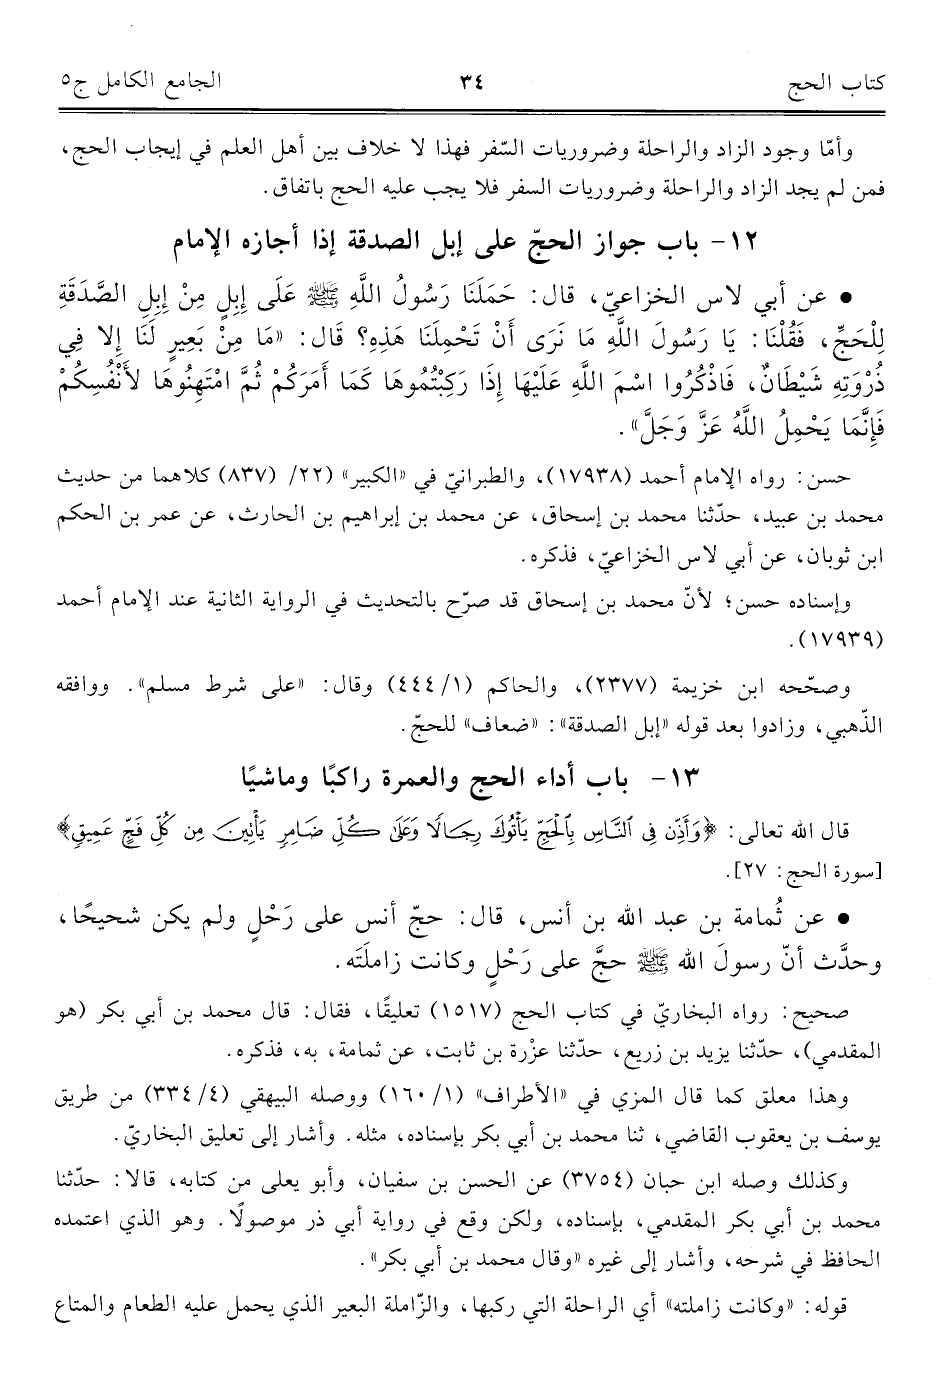 كتاب الحج ٣٤ الجامع الكامل ج٥
وأمّا وجود الزاد والراحلة وضروريات السّفر فهذا لا خلاف بين أهل العلم في إيجاب الحج،
فمن لم يجد الزاد والراحلة وضروريات السفر فلا يجب عليه الحج باتفاق.
١٢- باب جواز الحجّ على إبل الصدقة إذا أجازه الإمام
• عن أبي لاس الخزاعيّ، قال: حَمَلَنَا رَسُولُ اللَّهِ ﷺ عَلَى إِبِلٍ مِنْ إِبِلِ الصَّدَقَةِ
لِلْحَجِّ، فَقُلْنَا: يَا رَسُولَ اللَّهِ مَا نَرَى أَنْ تَحْمِلَنَا هَذِهِ؟ قَالَ: «مَا مِنْ بَعِيرٍ لَنَا إِلا فِي
ذُرْوَتِهِ شَيْطَانٌ، فَاذْكُرُوا اسْمَ اللَّهِ عَلَيْهَا إِذَا رَكِبْتُمُوهَا كَمَا أَمَرَكُمْ ثُمَّ امْتَهِنُوهَا لأَنْفُسِكُمْ
فَإِنَّمَا يَحْمِلُ اللَّهُ عَزَّ وَجَلَّ».
حسن: رواه الإمام أحمد (١٧٩٣٨)، والطبرانيّ في «الكبير» (٢٢/ (٨٣٧) كلاهما من حديث
محمد بن عبيد، حدّثنا محمد بن إسحاق، عن محمد بن إبراهيم بن الحارث، عن عمر بن الحكم
ابن ثوبان، عن أبي لاس الخزاعيّ، فذكره.
وإسناده حسن؛ لأنّ محمد بن إسحاق قد صرّح بالتحديث في الرواية الثانية عند الإمام أحمد
(١٧٩٣٩).
وصحّحه ابن خزيمة (٢٣٧٧)، والحاكم (١/ ٤٤٤) وقال: «على شرط مسلم». ووافقه
الذّهبي، وزادوا بعد قوله «إبل الصدقة»: «ضعاف» للحجّ.
١٣- باب أداء الحج والعمرة راكبًا وماشيًا
قال الله تعالى: ﴿وَأَذِّن فِي ٱلنَّاسِ بِٱلْحَجِّ يَأْتُوكَ رِجَالًا وَعَلَىٰ كُلِّ ضَامِرٍ يَأْتِينَ مِن كُلِّ فَجٍّ عَمِيقٍ﴾
[سورة الحج: ٢٧].
• عن ثُمامة بن عبد الله بن أنس، قال: حجّ أنس على رَحْلٍ ولم يكن شحيحًا،
وحدَّث أنّ رسولَ الله ﷺ حجَّ على رَحْلٍ وكانت زاملَتَه.
صحيح: رواه البخاريّ في كتاب الحج (١٥١٧) تعليقًا، فقال: قال محمد بن أبي بكر (هو
المقدمي)، حدّثنا يزيد بن زريع، حدّثنا عزْرة بن ثابت، عن ثمامة، به، فذكره.
وهذا معلق كما قال المزي في «الأطراف» (١/ ١٦٠) ووصله البيهقي (٤/ ٣٣٤) من طريق
يوسف بن يعقوب القاضي، ثنا محمد بن أبي بكر بإسناده، مثله. وأشار إلى تعليق البخاريّ.
وكذلك وصله ابن حبان (٣٧٥٤) عن الحسن بن سفيان، وأبو يعلى من كتابه، قالا: حدّثنا
محمد بن أبي بكر المقدمي، بإسناده، ولكن وقع في رواية أبي ذر موصولًا. وهو الذي اعتمده
الحافظ في شرحه، وأشار إلى غيره «وقال محمد بن أبي بكر».
قوله: «وكانت زاملته» أي الراحلة التي ركبها، والزّاملة البعير الذي يحمل عليه الطعام والمتاع